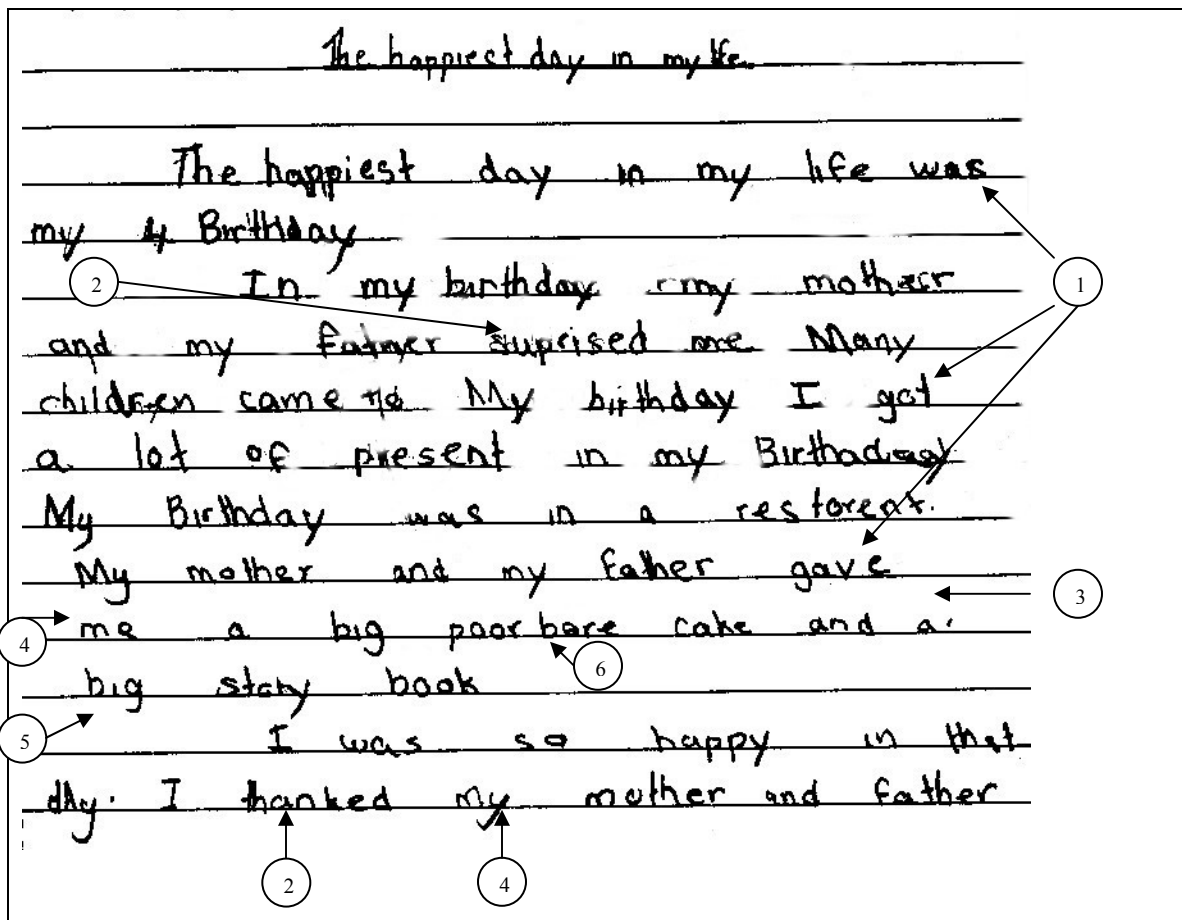 The happiest day in my life
The happiest day in my life was
my 4 Birthday
2 In my birthday my mother 1
and my father suprised me Many
children came to My birthday I got
a lot of present in my Birthaday
My Birthday was in a restorent.
My mother and my father gave
3
4 me a big poor bare cake and a
6
big story book
5 I was so happy in that
day. I thanked my mother and father
2 4